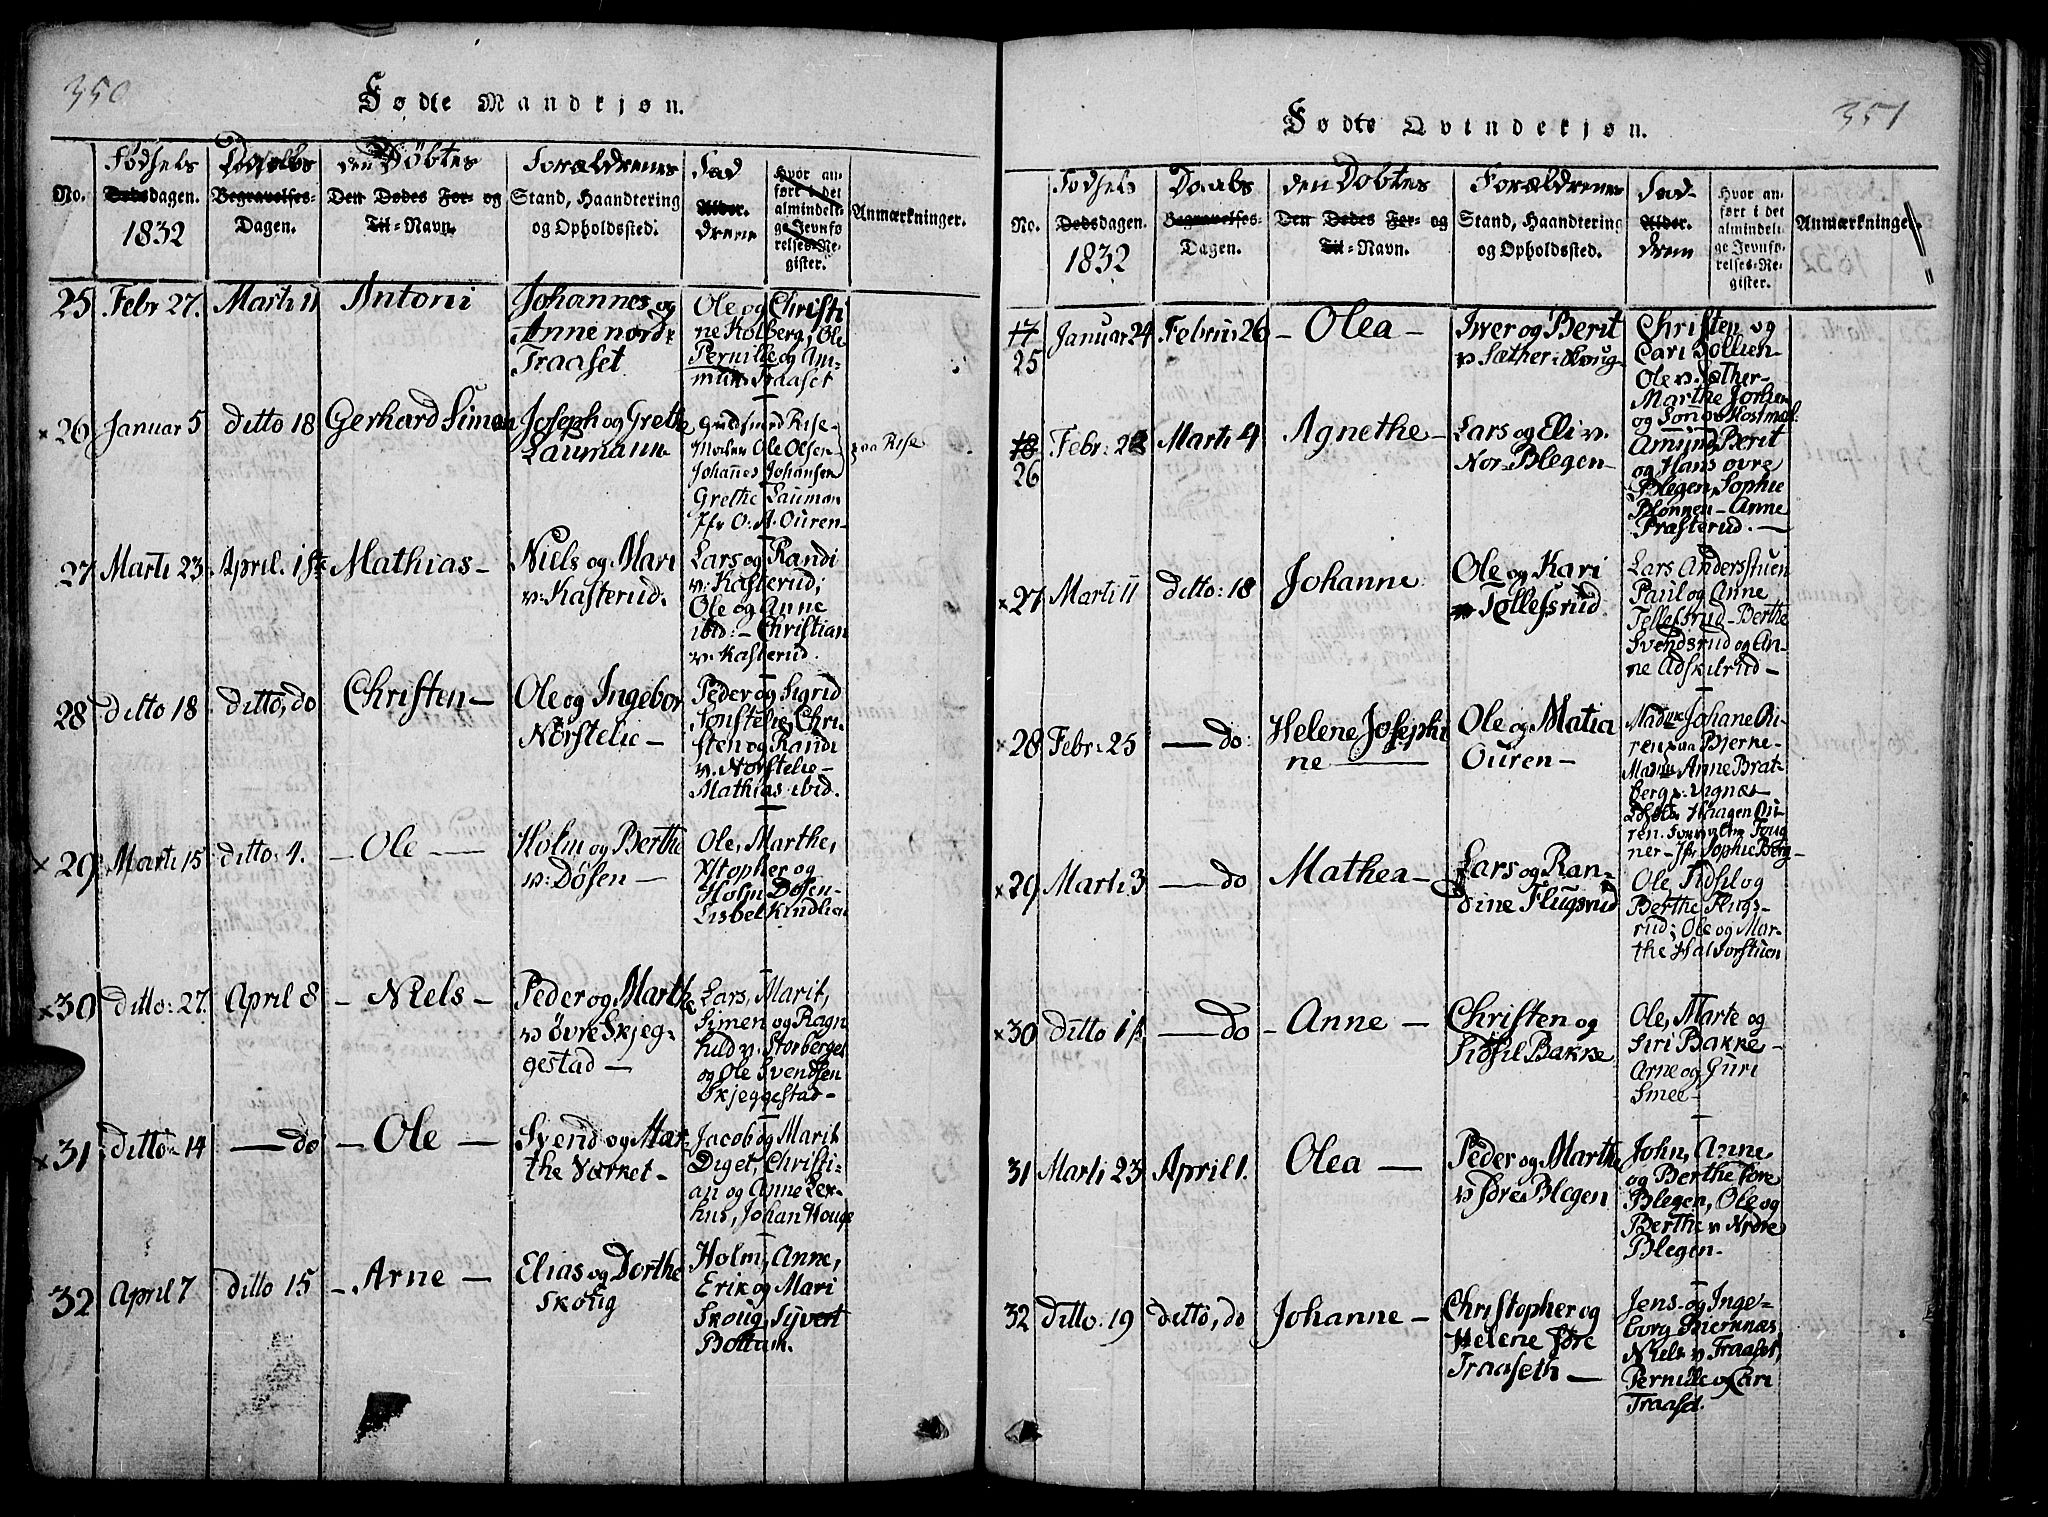 350
Fødte Mandkjøn.
No.
Fødsels
Dødsdagen.
1832
Daabs
Begravelses-
Dagen.
den Døbtes
Den Dødes For- og
Til-Navn.
Forældrenes
Stand, Haandtering
og Opholdssted.
Fad
Alder.
drene
Hvor an-
ført i det
almindeli-
ge Jevnfø-
relses-Re-
gister.
Anmærkninger.
25 Febr 27. Marti 11 Antoni
Johannes og
Anne nordr
Traaset
Ole og Christi
ne Kolberg, Ole
Pernille og Am-
mun Traaset
× 26 Januar 5 ditto 18 Gerhard Simen
Joseph og Grethe
Laumann-
Gudmund Rise-
Ole Olsen-
Johannes Johansen
Grethe Lauman
Jfr O. A. Ouren-
paa Rise
27 Marti 23 April. 1ste Mathias-
Niels og Mari
v: Kasterud.
Lars og Randi
v: Kasterud;
Ole og Anne
ibid:- Christian
v: Kasterud.
28 ditto 18 ditto, do Christen-
Ole og Ingebor
Nørstelie-
Peder og Sigrid
Sønstelie, Chri-
sten og Randi
v. Norstelie-
Mathias ibid.
× 29 Marti 15 ditto: 4. - Ole -
Holm og Berthe
v: Døsen -
Ole, Marthe,
Xstopher og
Holm Døsen-
Lisbet Kindlien
× 30 ditto: 27. April 8 - Niels -
Peder og Marthe
v Øvre Skjeg-
gestad -
Lars, Marit,
Simen og Ragn
hild v: Storberget
og Ole Svendsen
Skjeggestad-
× 31 ditto 14 - do - Ole -
Svend og Mar
the Værket-
Jacob og Marit
Diget, Christi-
an og Anne Lex-
hus, Johan Houge
32 April 7 ditto 15 - Arne -
Elias og Dorthe
Skoug
Holm, Anne,
Erik og Mari
Skoug, Syvert
Bottam.
351
Fødte Qvindekjøn.
No.
Fødsels
Dødsdagen.
1832
Daabs
Begravelses-
Dagen.
den Døbtes
Den Dødes For- og
Til-Navn.
Forældrenes
Stand, Haandtering
og Opholdssted.
Fad-
Alder.
drene
Hvor an-
ført i det
almindeli-
ge Jevnfø-
relses-Re-
gister.
Anmærkninger.
17
25 Januar 24 Februar 26 - Olea -
Iver og Berit
v Sæther i Skoug-
Christen og
Cari Sollien-
Ole v. Sæther-
Marthe
og
18
26 Febr: 22 Marti 4 Agnethe-
Lars og Eli v.
Nor-Blegen-
Amund, Berit
og Hans øvre
Blegen, Sophie
Blonnen- Anne
Prasterud. -
× 27 Marti 11 ditto: 18 Johanne
Ole og Kari
v Tollefsrud.
Lars Andersstuen
Paul og Anne
Tellefsrud- Berthe
Svendsrud og An-
ne Adskilrud-
× 28 Febr: 25 - do: Helene Josephi
ne -
Ole og Matia
Ouren-
Madme Johane Ou-
ren paa Bjerne-
Madm Anne Brat-
berg p: Vignæs
Haagen Ou-
ren.
ner- Jfr Sophie Berg-
× 29 Marti 3 - do Mathea -
Lars og Ran-
dine Flugsrud
Ole, Sidsil og
Berthe Flugs-
rud; Ole og Mar-
the Halvorstuen
× 30 ditto 1ste - do - Anne -
Christen og
Sidsil Bakke
Ole, Marte og
Siri Bakke-
Arne og Guri
Smee-
31 Marti 23 April 1. Olea -
Peder og Marthe
v Søre Blegen
John, Anne
og Berthe søre
Blegen, Ole og
Berthe v Nordre
Blegen-
32 ditto: 19 ditto, do Johanne-
Christopher og
Helene søre
Traaseth -
Jens og Inge-
borg Bjerknæs
Niels v Traaset,
Pernille og Cari
Traaset.